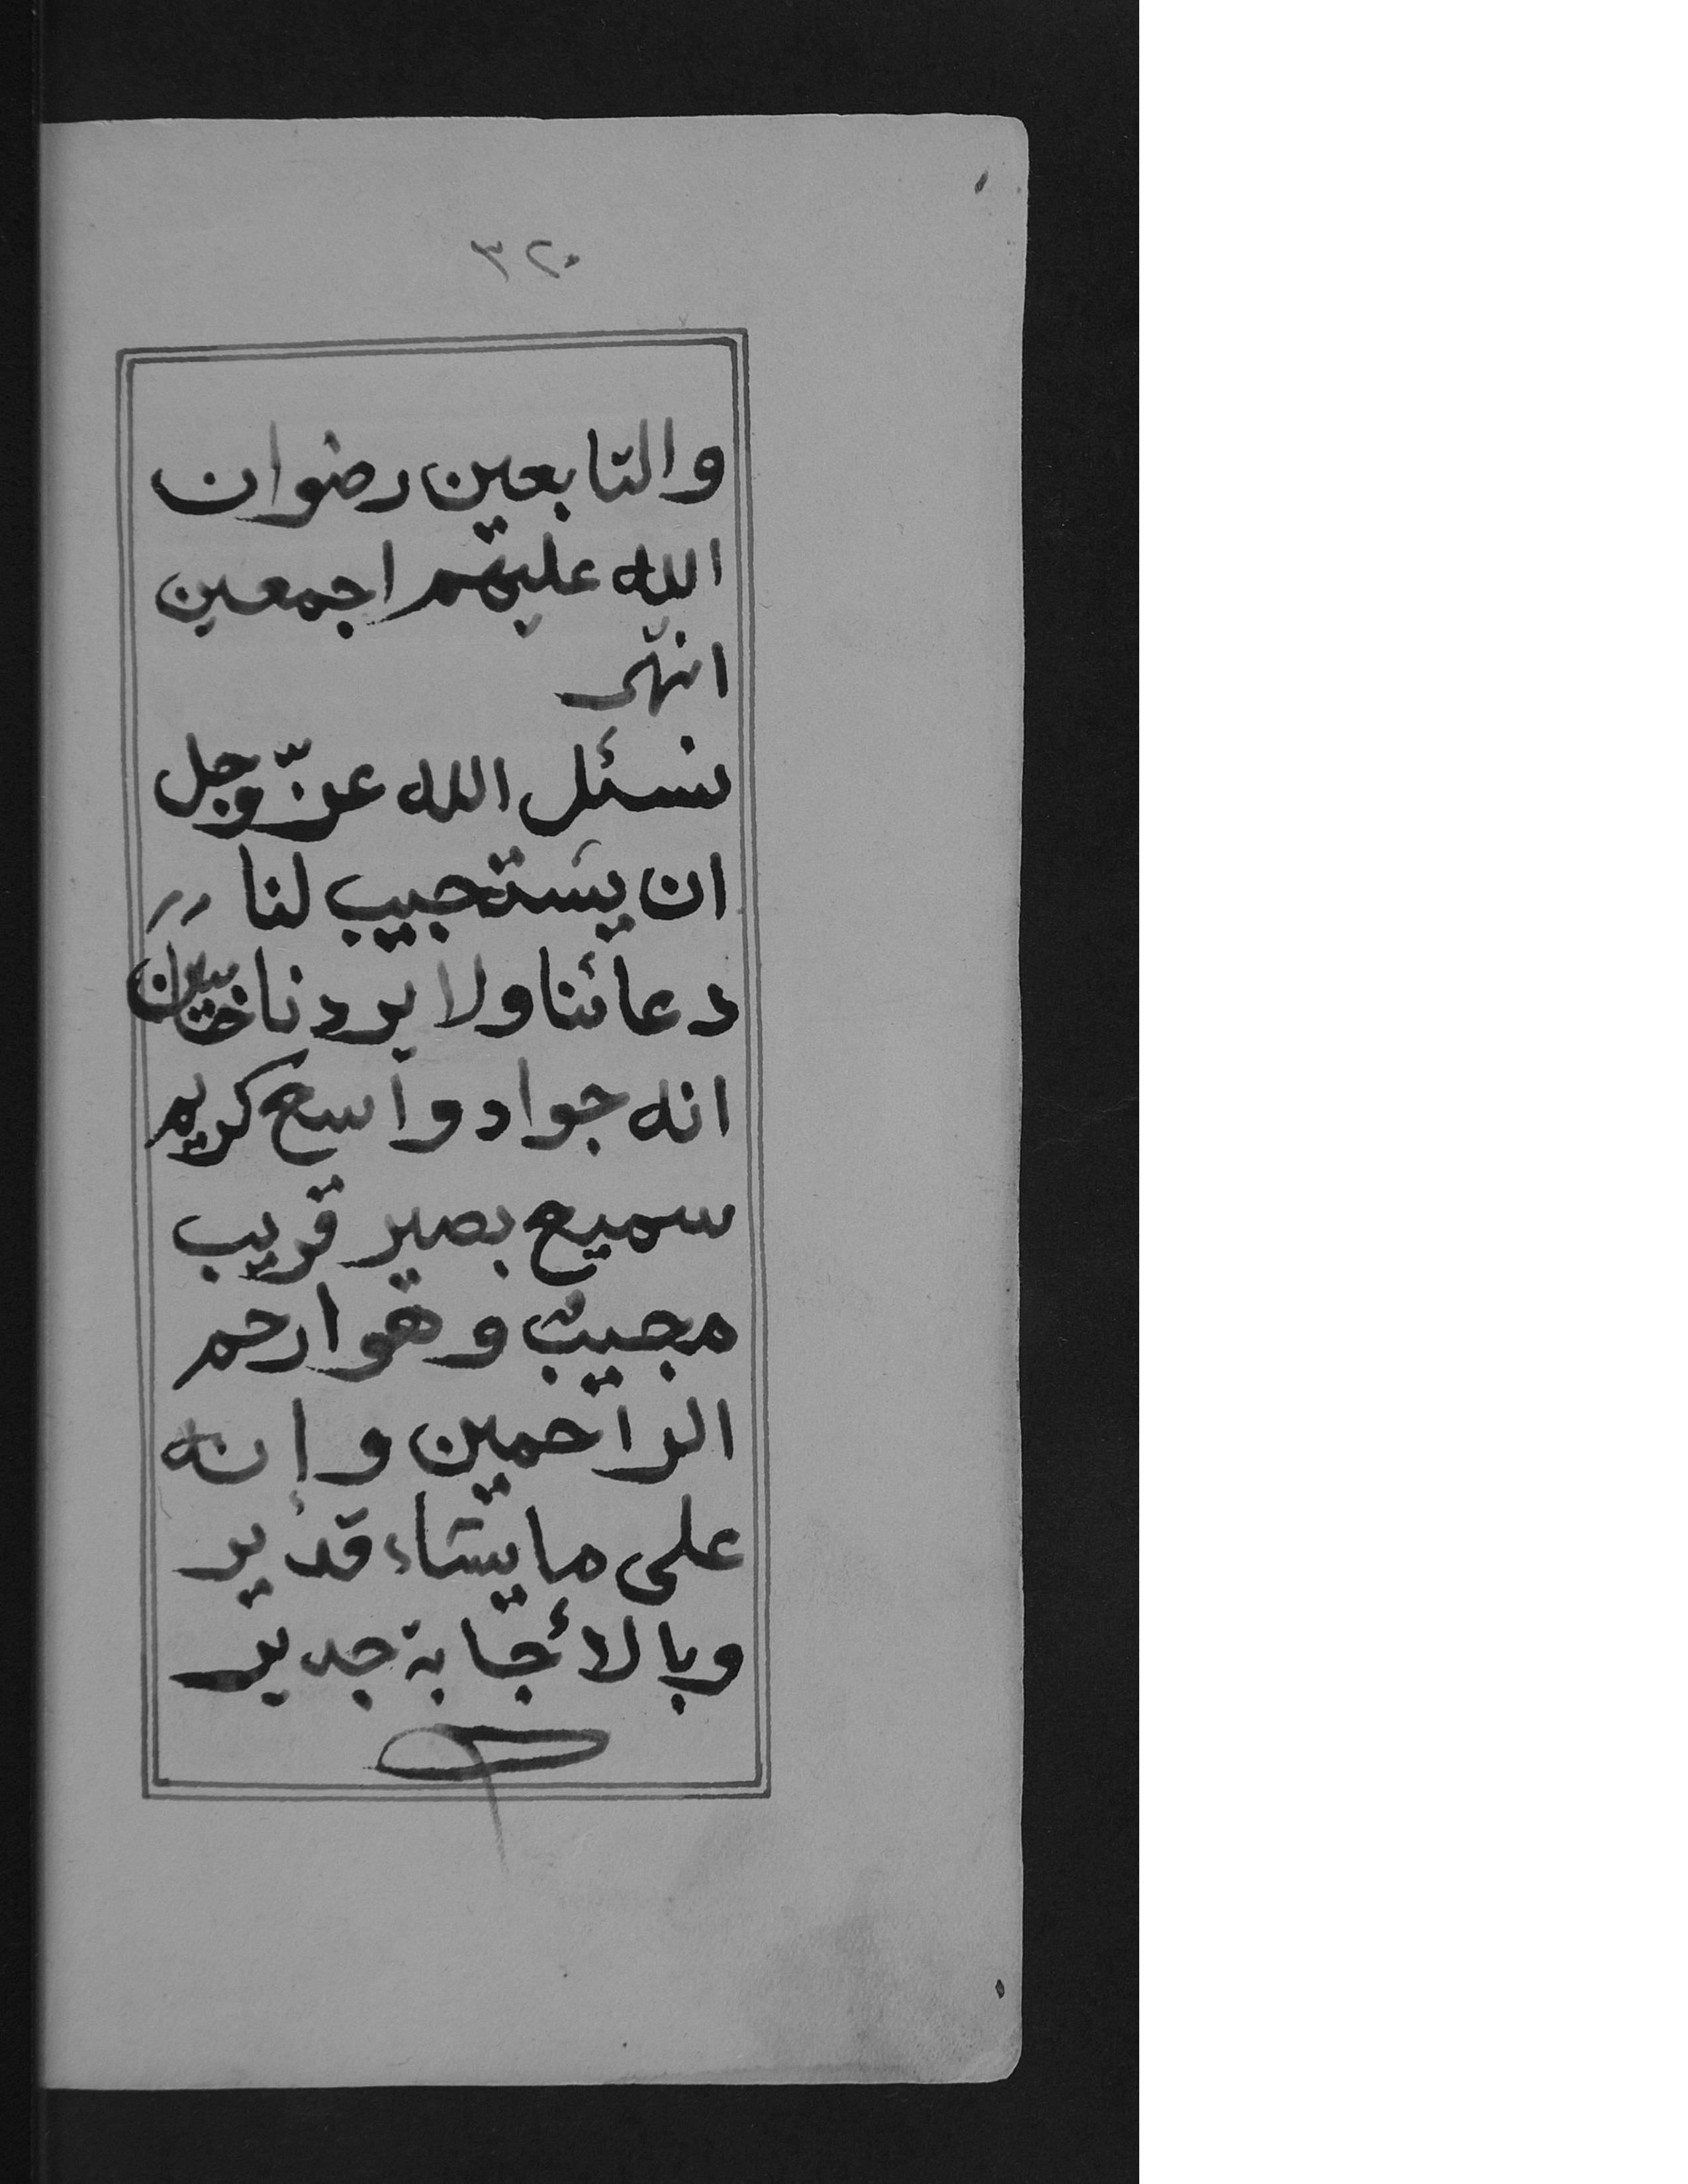 ٣٢٠
والتابعين رضوان
الله عليهم اجمعين
انتهى
نسئل الله عزّ وجل
ان يستجيب لنا
دعائنا ولا يردنا خائبين
انه جواد واسع كريم
سميع بصير قريب
مجيب وهو ارحم
الراحمين وإنه
على ما يشاء قدير
وبالأجابة جدير